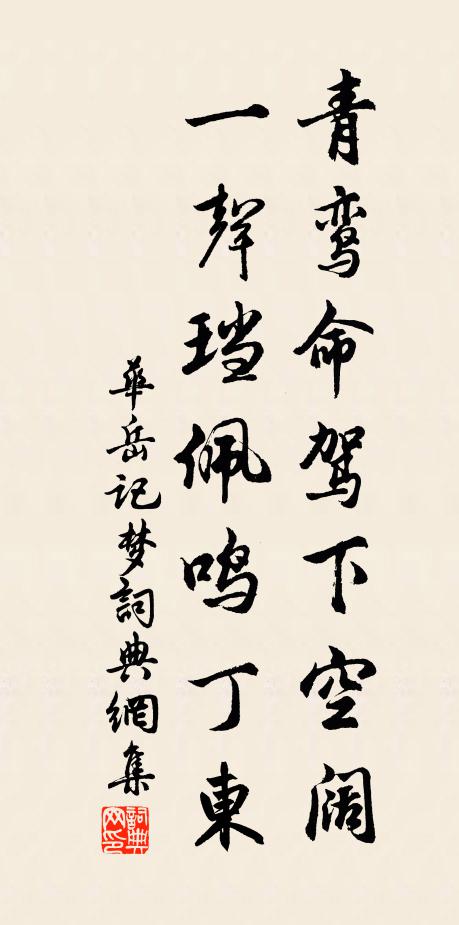 青鸾命驾下空阔
一聲珰佩鳴丁東
華岳记梦詞典網集
詞典网印